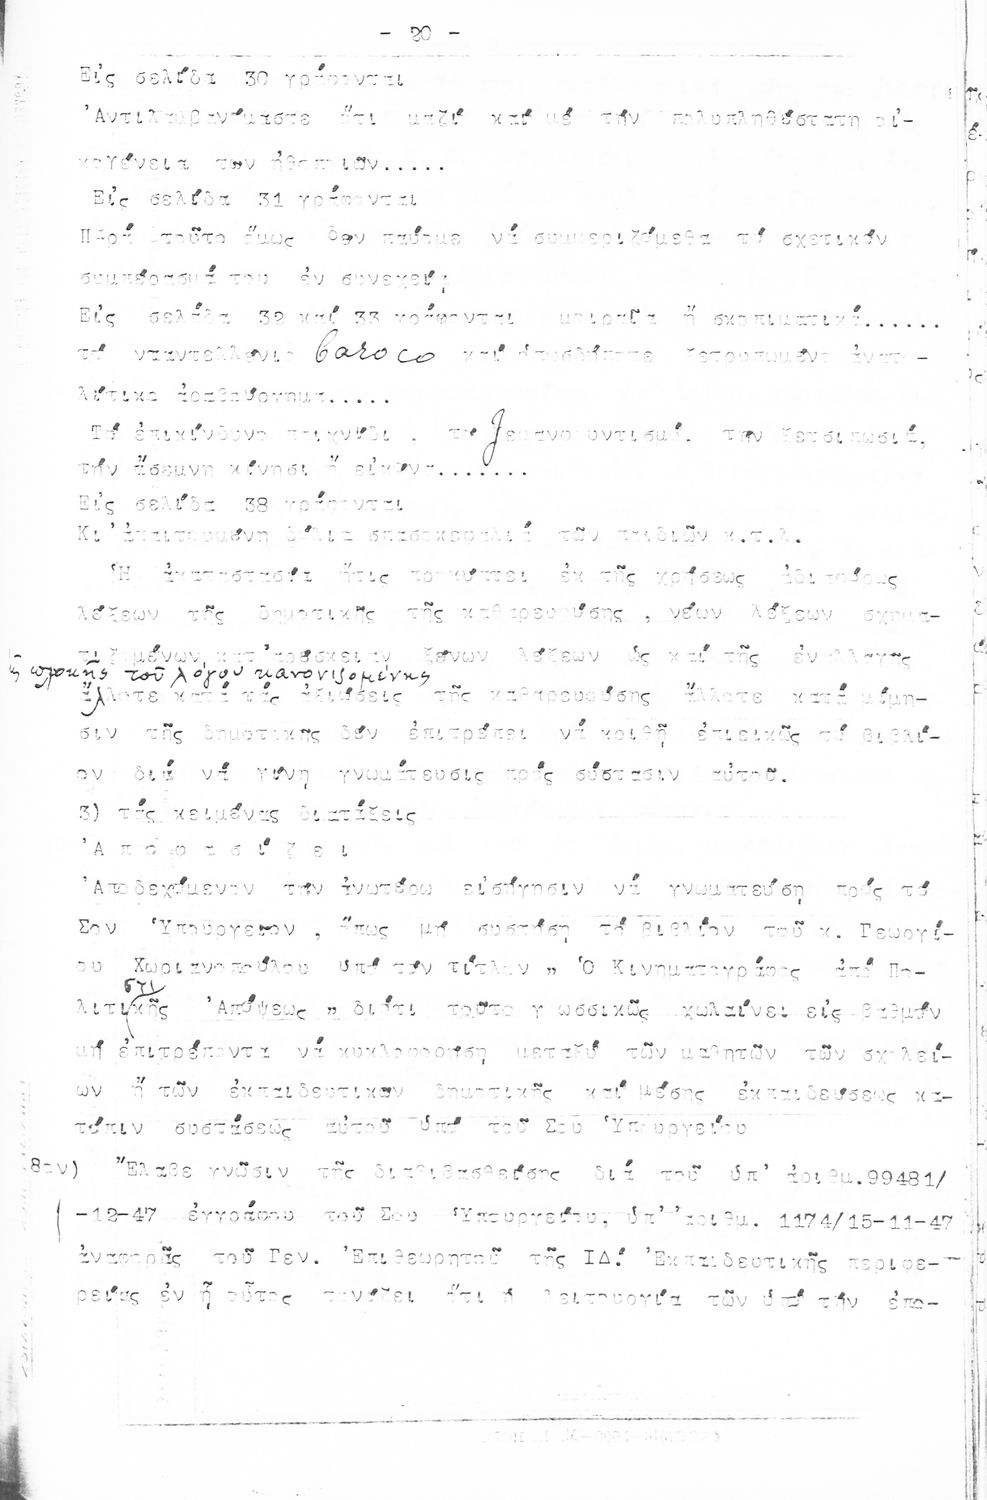 - 20 -
Εἰς σελίδα 30 γράφονται
Ἀντιλαμβανόμαστε ὅτι μαζί καί μέ τήν πολυπληθέστατη οἰ-
κογένεια τῶν ἠθοποιῶν.....
Εἰς σελίδα 31 γράφονται
Παρά τοῦτο ὅμως δέν παύομε νά συμμεριζόμεθα τό σχετικόν
συμπέρασμά του ἐν συνεχείᾳ
Εἰς σελίδα 32 καί 33 γράφονται μοιραῖα ἤ σκοπιματικά......
τά νταντελλένια baroco καί ὁπωσδήποτε ξετρυπωμένα
ἀραβούργημα.....
Τό ἐπικίνδυνο παιχνίδι . τήν ξετσιπωσιά,
τήν ἄσεμνη κίνησι ἤ εἰκόνα.......
Εἰς σελίδα 38 γράφονται
Κι' ἀπαιτουμένη σπασοκεφαλιά τῶν παιδιῶν κ.τ.λ.
Ἡ ἀκαταστασία ἥτις προκύπτει ἐκ τῆς χρήσεως ἀδιαφόρως
λέξεων τῆς δημοτικῆς τῆς καθαρευούσης , νέων λέξεων σχημα-
τιζομένων κατ' ἀρέσκειαν ξένων λέξεων ὡς καί τῆς ἐναλλαγῆς
τῆς πλοκῆς τοῦ λόγου κανονιζομένης
ἄλλοτε κατά τάς ἀξιώσεις τῆς καθαρευούσης ἄλλοτε κατά μίμη-
σιν τῆς δημοτικῆς δέν ἐπιτρέπει νά κριθῇ ἐπιεικῶς τό βιβλί-
ον διά νά γίνῃ γνωμάτευσις πρός σύστασιν αὐτοῦ.
3) τάς κειμένας διατάξεις
Ἀ π ο φ α σ ί ζ ε ι
Ἀποδεχόμενον τήν ἀνωτέρω εἰσήγησιν νά γνωματεύσῃ πρός τό
Σον Ὑπουργεῖον , ὅπως μή συστήσῃ τό βιβλίον τοῦ κ. Γεωργί-
ου Χωριανοπούλου ὑπό τόν τίτλον " Ὁ Κινηματογράφος ἀπό Πο-
λιτικῆς Ἀπόψεως " διότι τοῦτο γλωσσικῶς χωλαίνει εἰς βαθμόν
μή ἐπιτρέποντα νά κυκλοφορήσῃ μεταξύ τῶν μαθητῶν τῶν σχολεί-
ων ἤ τῶν ἐκπαιδευτικῶν δημοτικῆς καί μέσης ἐκπαιδεύσεως κα-
τόπιν συστάσεως αὐτοῦ ὑπό τοῦ Σοῦ Ὑπουργείου
8ον) Ἔλαβε γνῶσιν τῆς διαβιβασθείσης διά τοῦ ὑπ' ἀριθμ.99481/
-12-47 ἐγγράφου τοῦ Σου Ὑπουργείου, ὑπ' ἀριθμ. 1174/15-11-47
ἀναφορᾶς τοῦ Γεν. Ἐπιθεωρητοῦ τῆς ΙΔ! Ἐκπαιδευτικῆς περιφε-
ρείας ἐν ᾗ οὗτος τονίζει ὅτι ἡ λειτουργία τῶν ὑπό τήν ἐπο-